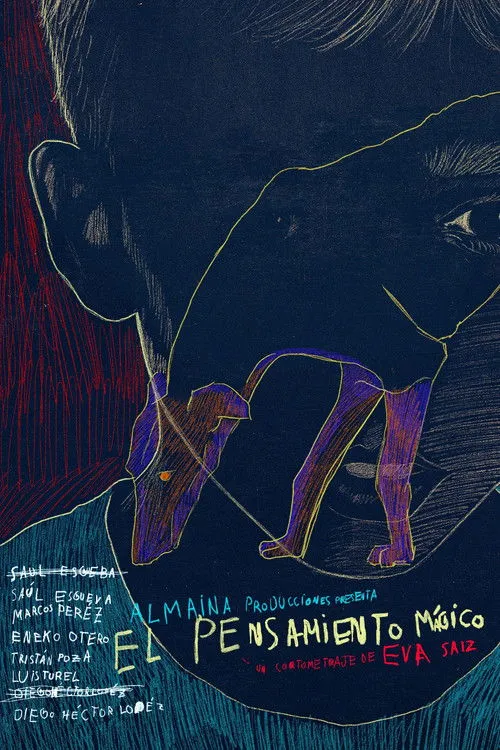 SAUL ESGEBA
SAÚL ESGUEVA
MARCOS PÉREZ
ENEKO OTERO
TRISTÁN POZA
LUIS TUREL
DIEGO HÉCTOR LOPÉZ
ALMAINA PRODUCCIONES PRESENTA
EL PENSAMIENTO MÁGICO
UN CORTOMETRAJE DE EVA SAIZ